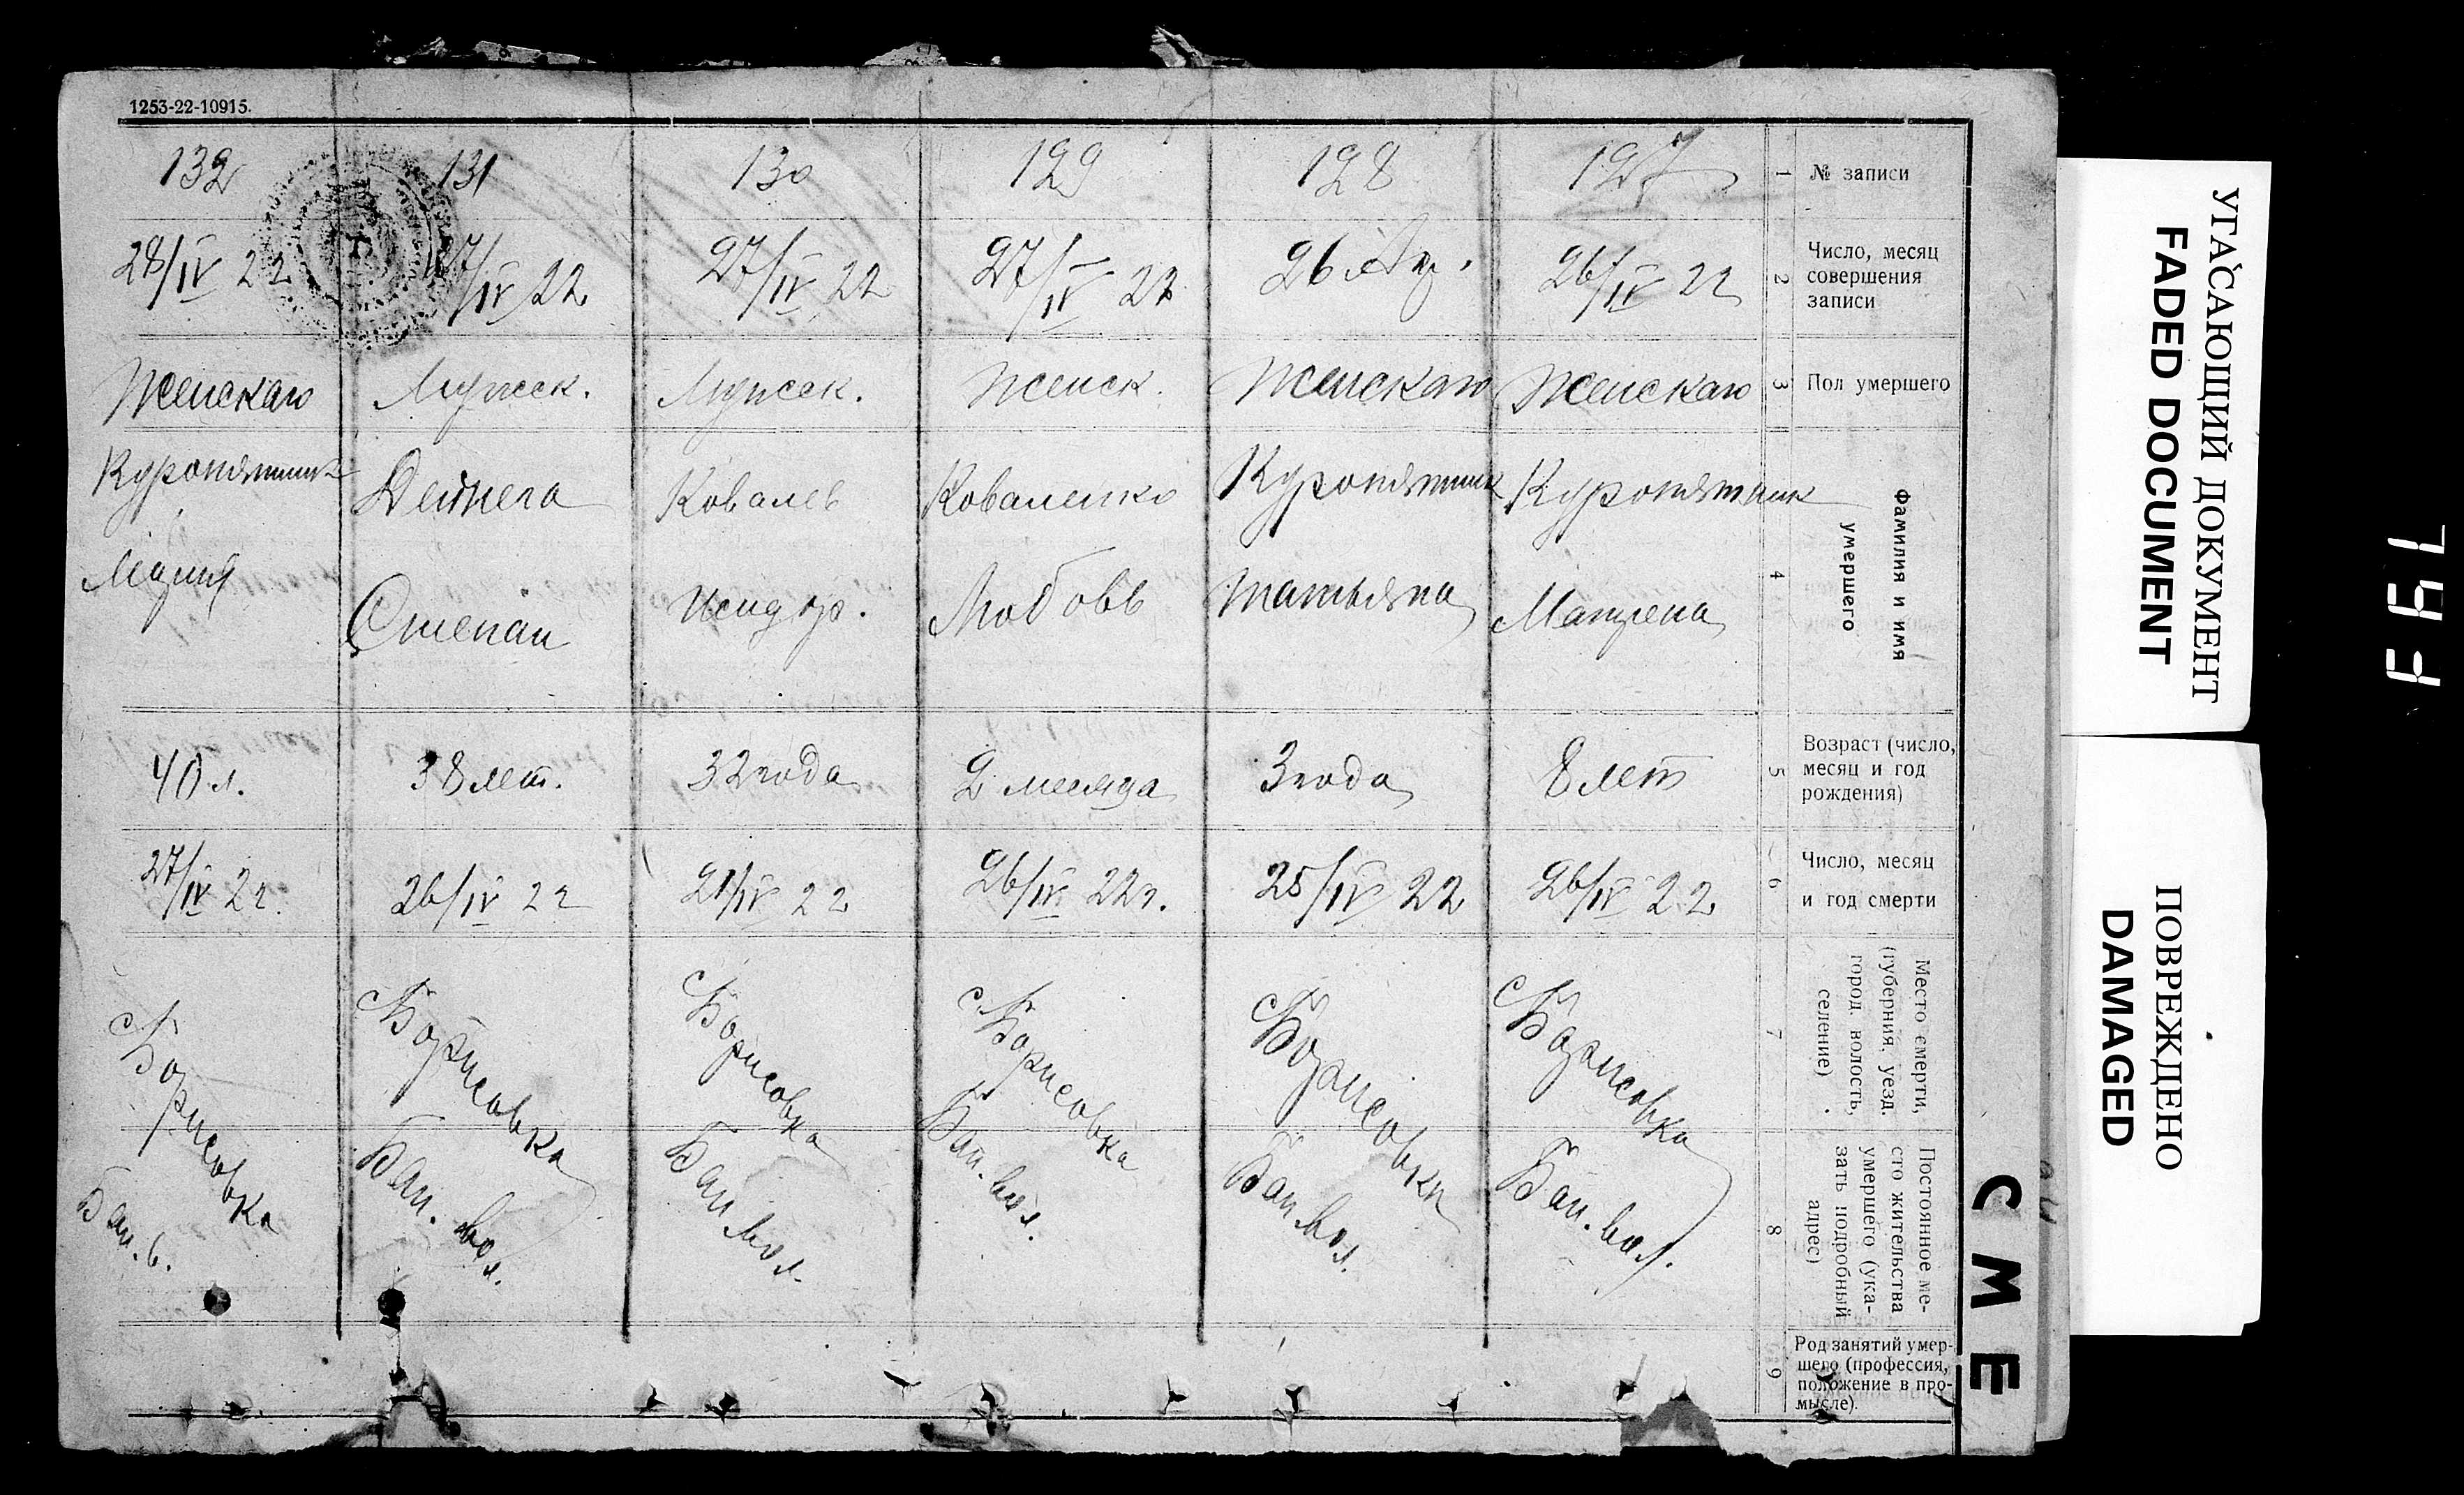 1253-22-10915.
132 131 130 129 128 127 1 № записи
28/IV 22 27/IV 22 27/IV 22 27/IV 22 26 Апр. 26/IV 22 2 Число, месяц
совершения
записи
Женскаго Мужеск. Мужеск. Женск. Женскаго Женскаго 3 Пол умершего
Куропятник Дейнега Ковалев Коваленко Куропятник Куропятник 4 Фамилия и имя
умершего
Мария Степан Исидор. Любовь Татьяна Матрена
40 л. 38 лет. 32 года 2 месяца 3 года 8 лет 5 Возраст (число,
месяц и год
рождения)
27/IV 22. 26/IV 22 21/IV 22 26/IV 22г. 25/IV 22 26/IV 22 6 Число, месяц
и год смерти
с Борисовка с Борисовка с Борисовка с Борисовка с Борисовки с Борисовка 7 Место смерти,
(губерния, уезд,
город, волость,
селение)
Бан. в. Бан. вол. Бан вол. Бан. вол. Бан. вол. Бан. вол. 8 Постоянное ме-
сто жительства
умершего (ука-
зать подробный
адрес)
9 Род занятий умер-
шего (профессия,
положение в про-
мысле).
УГАСАЮЩИЙ ДОКУМЕНТ
FADED DOCUMENT
ПОВРЕЖДЕНО
DAMAGED
С М Е